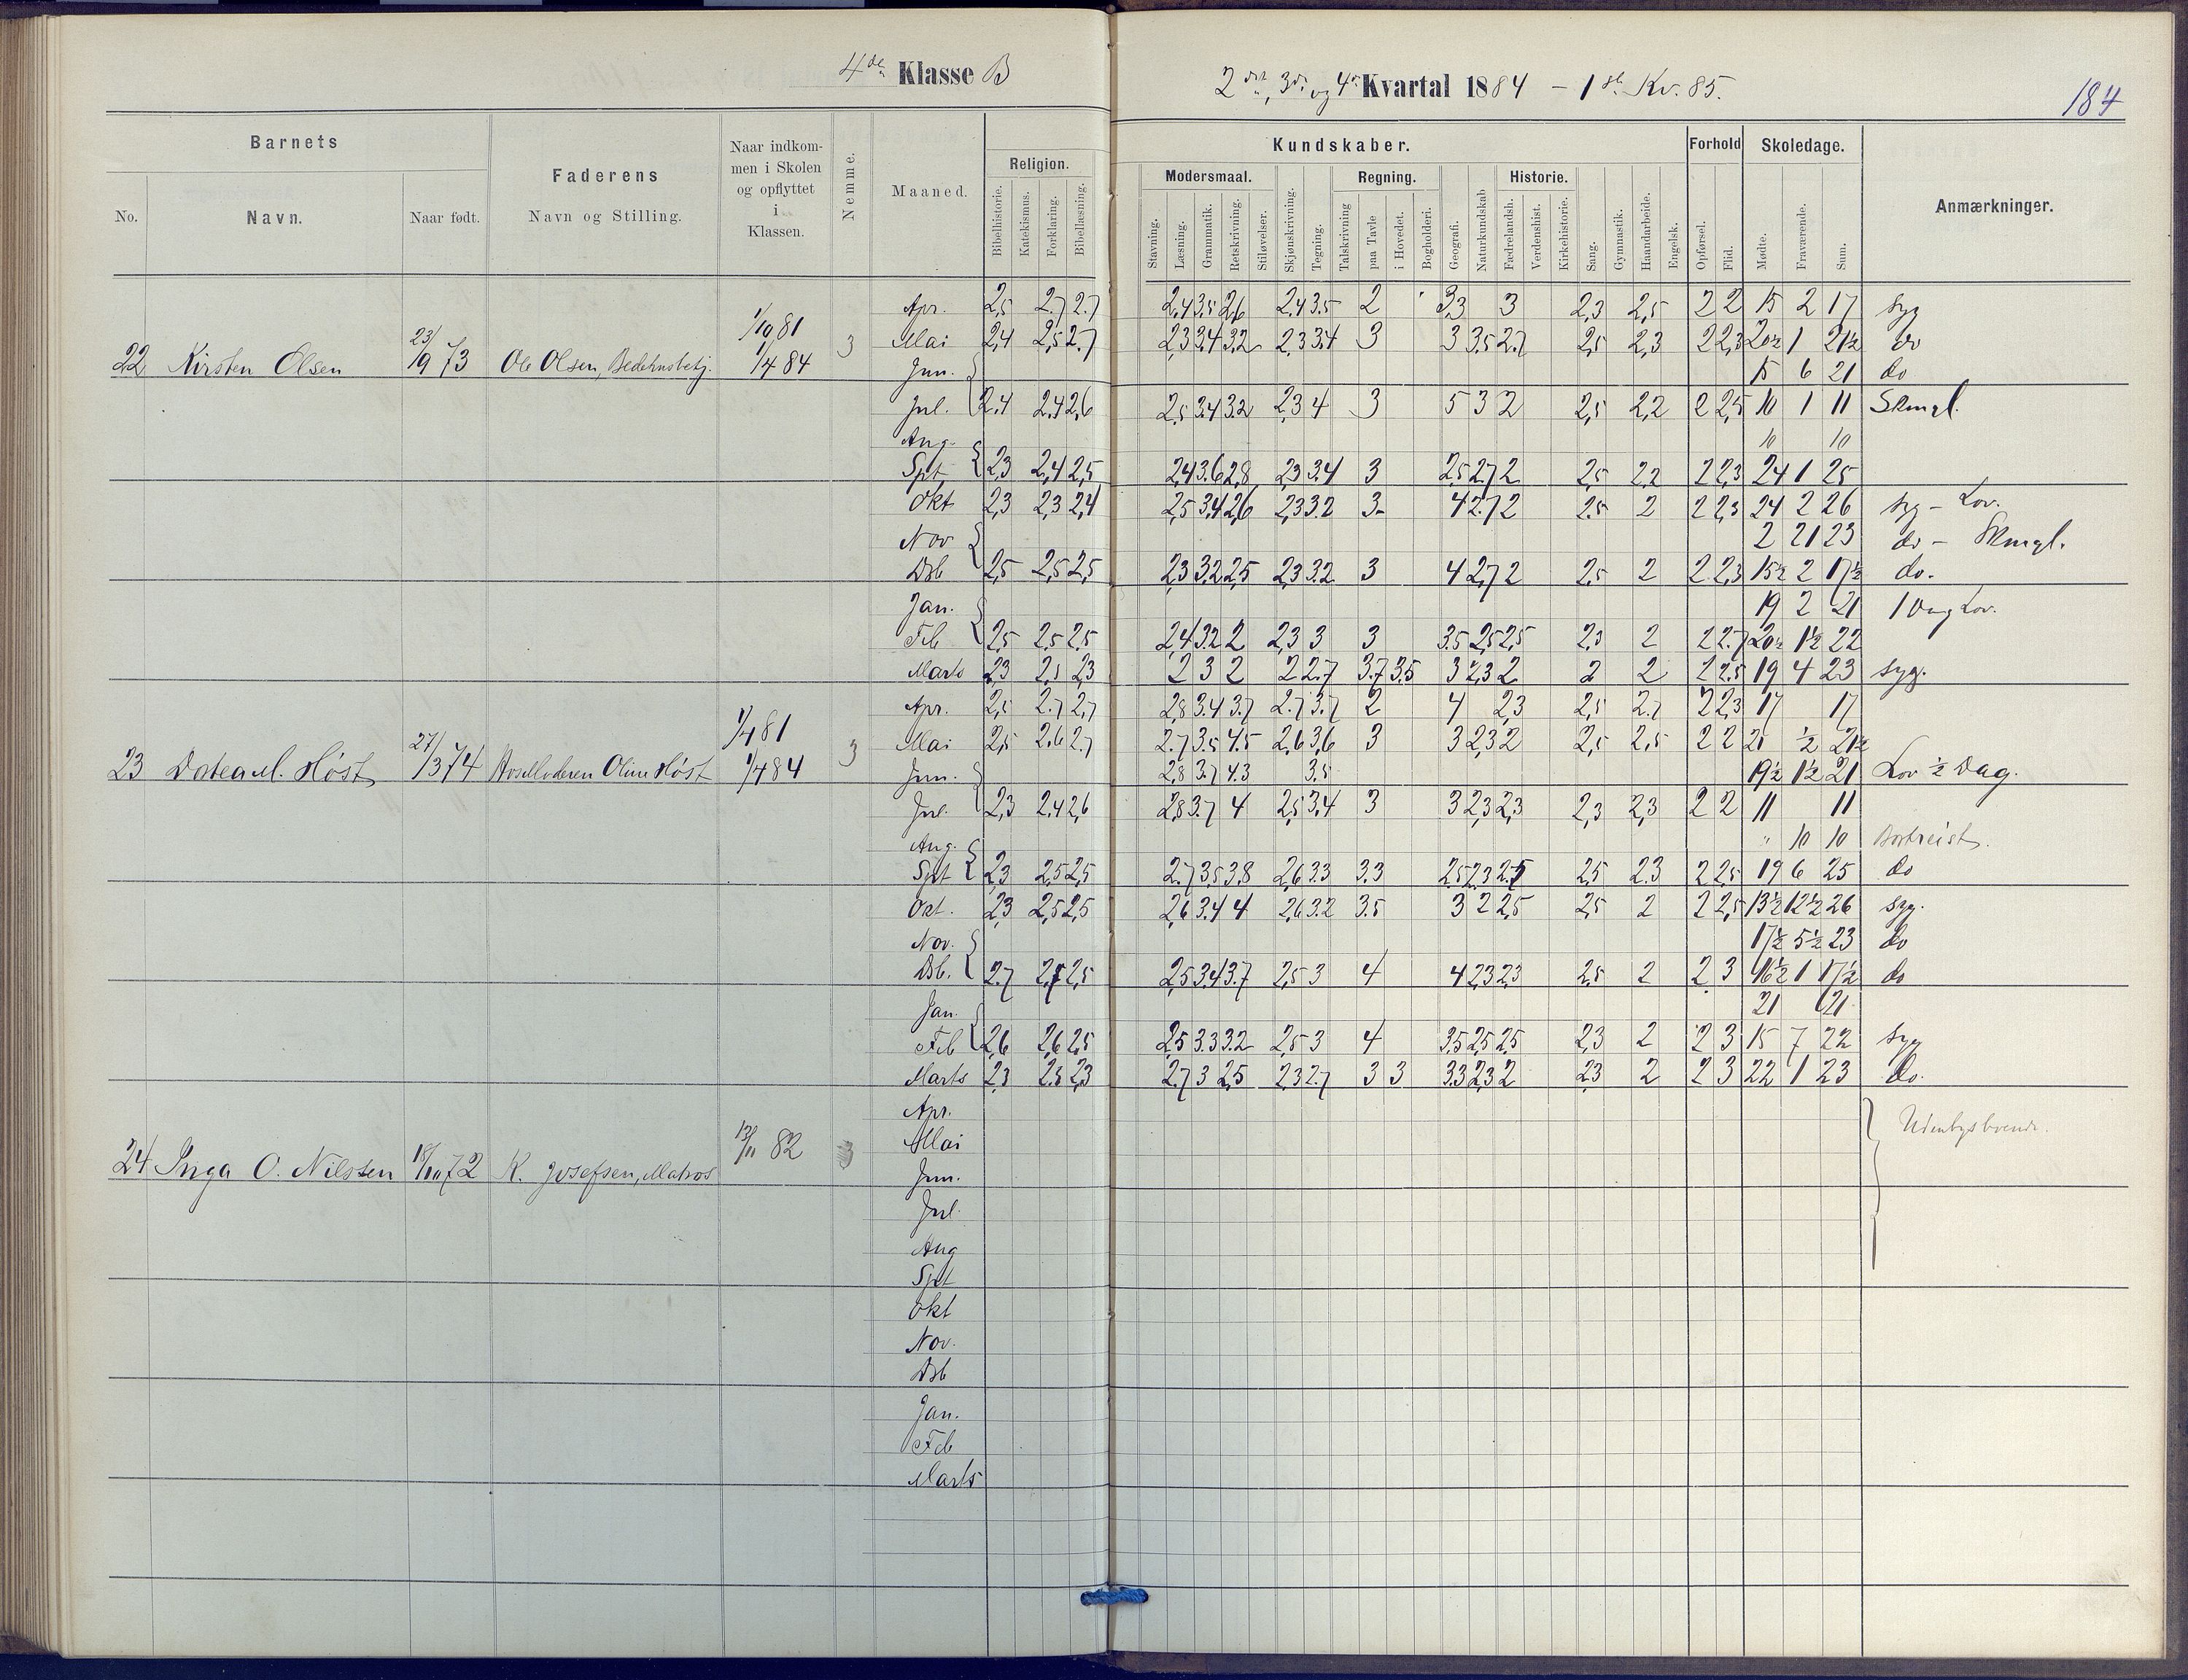 4de Klasse B
2det, 3die og 4de Kvartal 1884 - 1ste Kv. 85.
184
Barnets
No.
Navn.
Naar født.
Faderens
Navn og Stilling.
Naar indkom-
men i Skolen
og opflyttet
i
Klassen.
Nemme.
Maaned.
Religion.
Bibelhistorie.
Katekismus.
Forklaring.
Bibellæsning.
Kundskaber.
Modersmaal.
Stavning.
Læsning.
Grammatik.
Retskrivning.
Stiløvelser.
Skjønskrivning.
Tegning.
Regning.
Talskrivning
paa Tavle
i Hovedet.
Bogholderi.
Geografi.
Naturkundskab
Historie.
Fædrelandsh.
Verdenshist.
Kirkehistorie.
Sang.
Gymnastik.
Haandarbeide.
Engelsk.
Forhold
Opførsel.
Flid.
Skoledage.
Mødte.
Fraværende.
Sum.
Anmærkninger.
22 Kirsten Olsen 23/9 73 Ole Olsen, 1/10 81 1/4 84 3
Apr. 2,5 2.7 2.7 2,4 3.5 2,6 2,4 3.5 2 3,3 3 2,3 2,5 2 2 15 2 17 syg
Mai 2,4 2,5 2.7 2,3 3,4 3,2 2,3 3,4 3 3 3.5 2.7 2,5 2,3 2 2,3 20½ 1 21½ do
Jun. 15 6 21 do
Jul. 2.4 2.4 2,6 2,5 3.4 3.2 2,3 4 3 5 3 2 2,5 2,2 2 2,5 10 1 11 Skmgl.
Aug. 10 10
Spt. 2,3 2,4 2,5 2,4 3.6 2,8 2,3 3.4 3 2,5 2.7 2 2,5 2,2 2 2,3 24 1 25
Okt 2,3 2,3 2,4 2,5 3,4 2,6 2,3 3.2 3- 4 2.7 2 2.5 2 2 2,3 24 2 26 syg - Lov.
Nov 2 21 23 do - Skmgl.
Dsb 2,5 2,5 2,5 2,3 3.2 2,5 2,3 3.2 3 4 2,7 2 2,5 2 2 2,3 15½ 2 17½ do.
Jan. 19 2 21 1 Dag Lov.
Feb 2,5 2,5 2,5 2,4 3.2 2 2,3 3 3 3.5 2,5 2,5 2,3 2 2 2.7 20½ 1½ 22
Marts 2,3 2,5 2,3 2 3 2 2 2.7 3.7 3.5 3 2,3 2 2 2 2 2.5 19 4 23 syg.
23 Dotea M. Høst 27/3 74 Oline Høst 1/4 81 1/4 84 3
Apr. 2,5 2.7 2,7 2,8 3.4 3.7 2.7 3.7 2 4 2,3 2,5 2.7 2 2,3 17 17
Mai 2,5 2.6 2.7 2.7 3.5 4.5 2,6 3,6 3 3 2,3 2 2,5 2,5 2 2 21 ½ 21½
Jun. 2,8 3.7 4.3 3.5 19½ 1½ 21 Lov ½ Dag.
Jul. 2,3 2.4 2,6 2,8 3.7 4 2,5 3,4 3 3 2,3 2,3 2,3 2,3 2 2 11 11
Aug. " 10 10 Bortreist.
Spt 2,3 2,5 2,5 2.7 3,5 3,8 2,6 3.3 3.3 2,5 2,3 2,5 2,5 2.3 2 2,5 19 6 25 do
Okt. 2,3 2,5 2,5 2,6 3.4 4 2,6 3.2 3.5 3 2 2,5 2,5 2 2 2,5 13½ 12½ 26 syg.
Nov. 17½ 5½ 23 do
Dsb. 2.7 2,5 2,5 2,5 3.4 3.7 2,5 3 4 4 2,3 2,3 2,5 2 2 3 16½ 1 17½ do
Jan. 21 21
Feb 2,6 2,6 2,5 2,5 3.3 3.2 2,5 3 4 3,5 2,5 2,5 2,3 2 2 3 15 7 22 syg
Marts 2,3 2.5 2,3 2.7 3 2,5 2,3 2.7 3 3 3.3 2,3 2 2,3 2 2 3 22 1 23 do.
24 Inga O. Nilssen 18/10 72 K. Josefsen, Matros 13/11 82 3
Apr. Udenbysboende.
Mai
Jun.
Jul.
Aug
Spt
Okt
Nov.
Dsb
Jan.
Feb
Marts